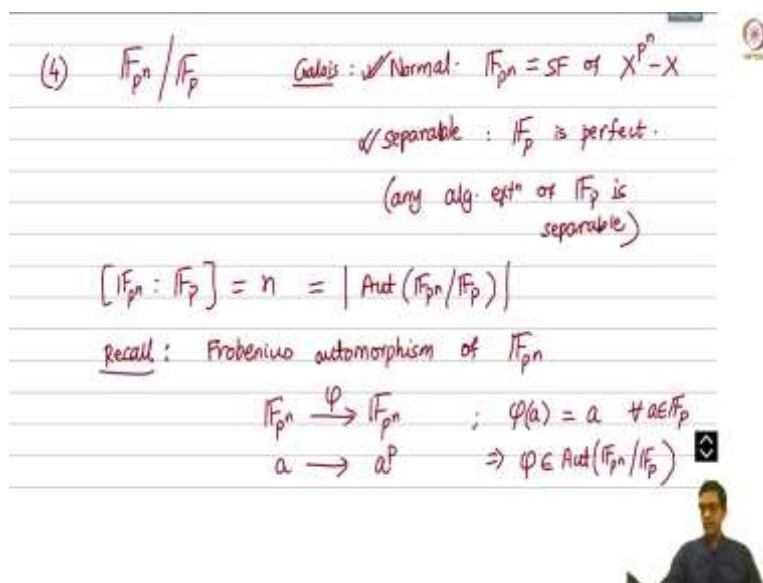 (4) 𝔽_{pⁿ} / 𝔽_p   Galois : ✓ Normal. 𝔽_{pⁿ} = SF of X^{pⁿ} - X
✓ separable : 𝔽_p is perfect.
(any alg. extⁿ of 𝔽_p is
separable)
[𝔽_{pⁿ} : 𝔽_p] = n = | Aut(𝔽_{pⁿ}/𝔽_p) |
Recall : Frobenius automorphism of 𝔽_{pⁿ}
𝔽_{pⁿ} —φ→ 𝔽_{pⁿ} ; φ(a) = a ∀ a∈𝔽_p
a → a^p ⇒ φ ∈ Aut(𝔽_{pⁿ}/𝔽_p)